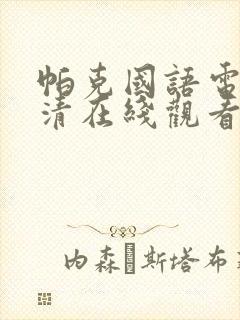 帕克國語電
清在綫觀看
内森·斯塔布